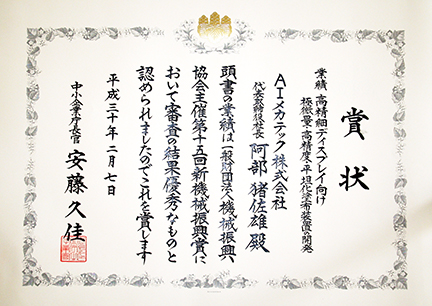 賞状
業績 高精細ディスプレイ向け
極微量・高精度・平坦化塗布装置の開発
AIメカテック株式会社
代表取締役社長 阿部 猪佐雄 殿
頭書の業績は一般財団法人機械振興
協会主催第十五回新機械振興賞に
おいて審査の結果優秀なものと
認められましたのでこれを賞します
平成三十年二月七日
中小企業庁長官 安藤久佳